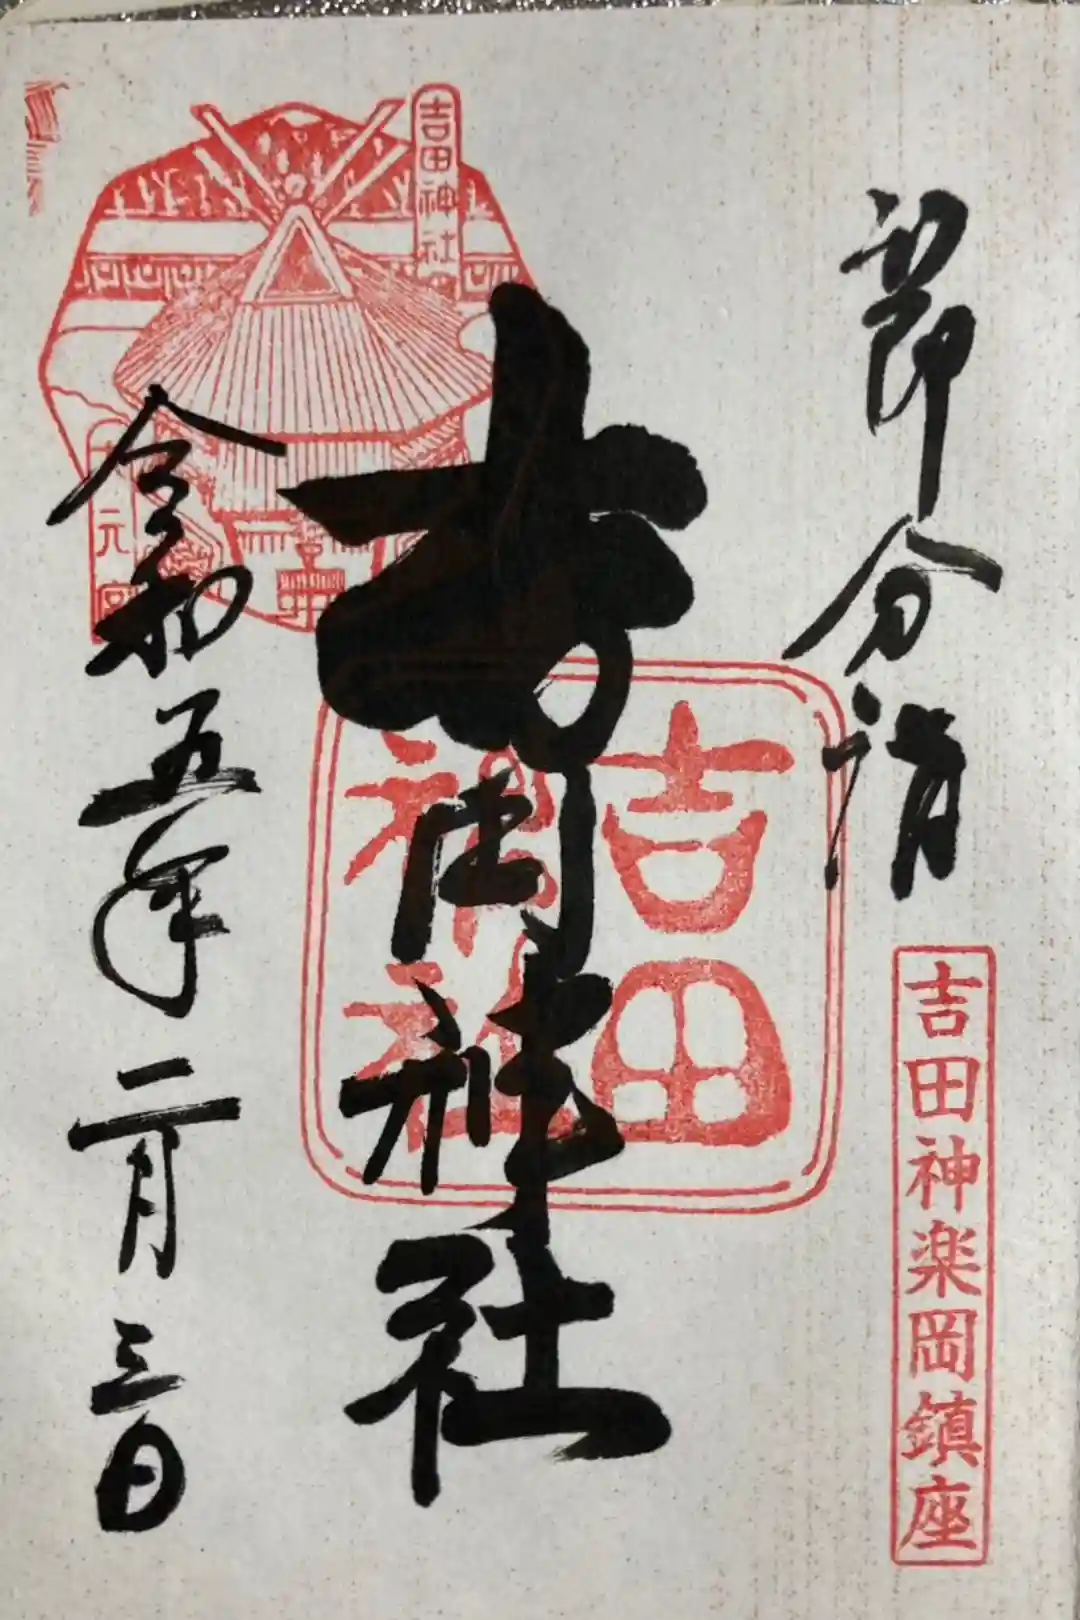 節分詣
吉田神楽岡鎮座
吉田神社
吉田神社
吉田神社
大元宮
令和五年二月三日